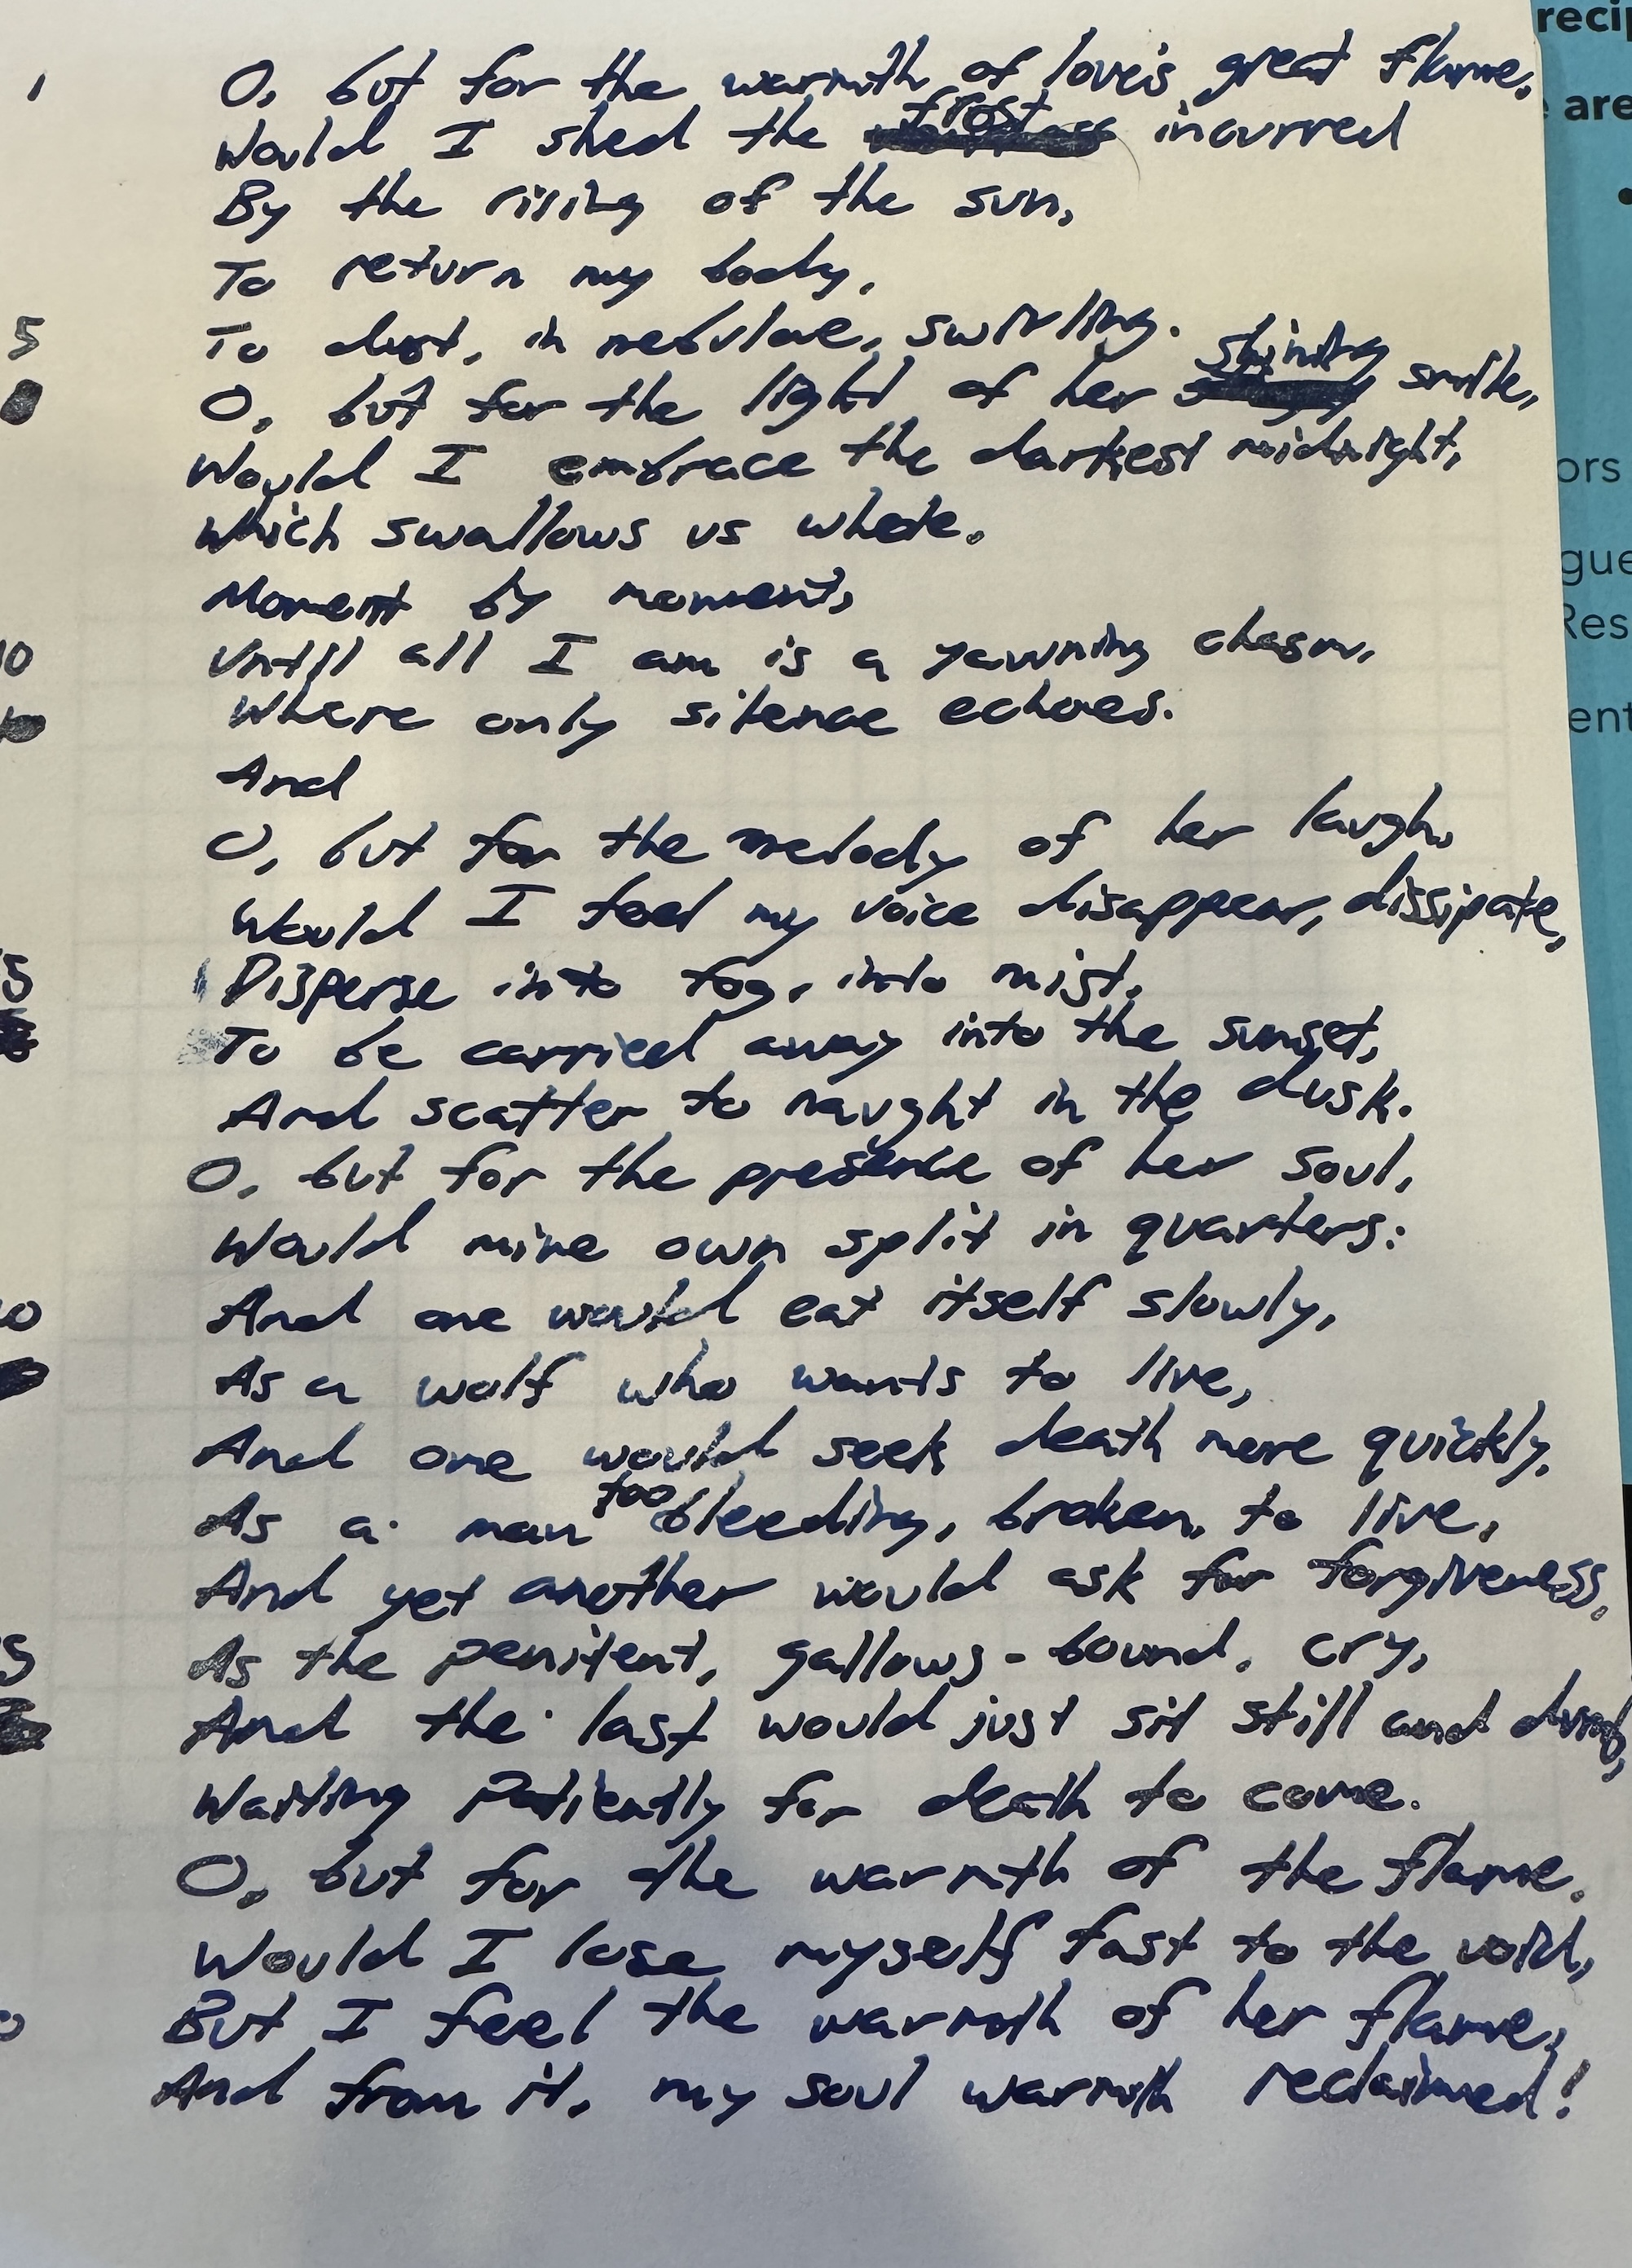 1 O, but for the warmth of love's great flame,
Would I shed the frost incurred
By the rising of the sun,
To return my body,
5 To dust, in nebulae, swirling.
O, but for the light of her shining smile,
Would I embrace the darkest midnight,
Which swallows us whole.
Moment by moment,
10 Untill all I am is a yawning chasm,
Where only silence echoes.
And
O, but for the melody of her laugh,
Would I feel my voice disappear, dissipate,
5 Disperse into fog, into mist,
To be carried away into the sunset,
And scatter to naught in the dusk.
O, but for the presence of her soul,
Would mine own split in quarters:
0 And one would eat itself slowly,
As a wolf who wants to live,
And one would seek death more quickly,
As a man too bleeding, broken, to live,
And yet another would ask for forgiveness,
5 As the penitent, gallows-bound, cry,
And the last would just sit still and dumb,
Waiting patiently for death to come.
O, but for the warmth of the flame,
Would I lose myself fast to the void,
0 But I feel the warmth of her flame,
And from it, my soul warmth reclaimed!
recip
are
ors
gue
Res
ent